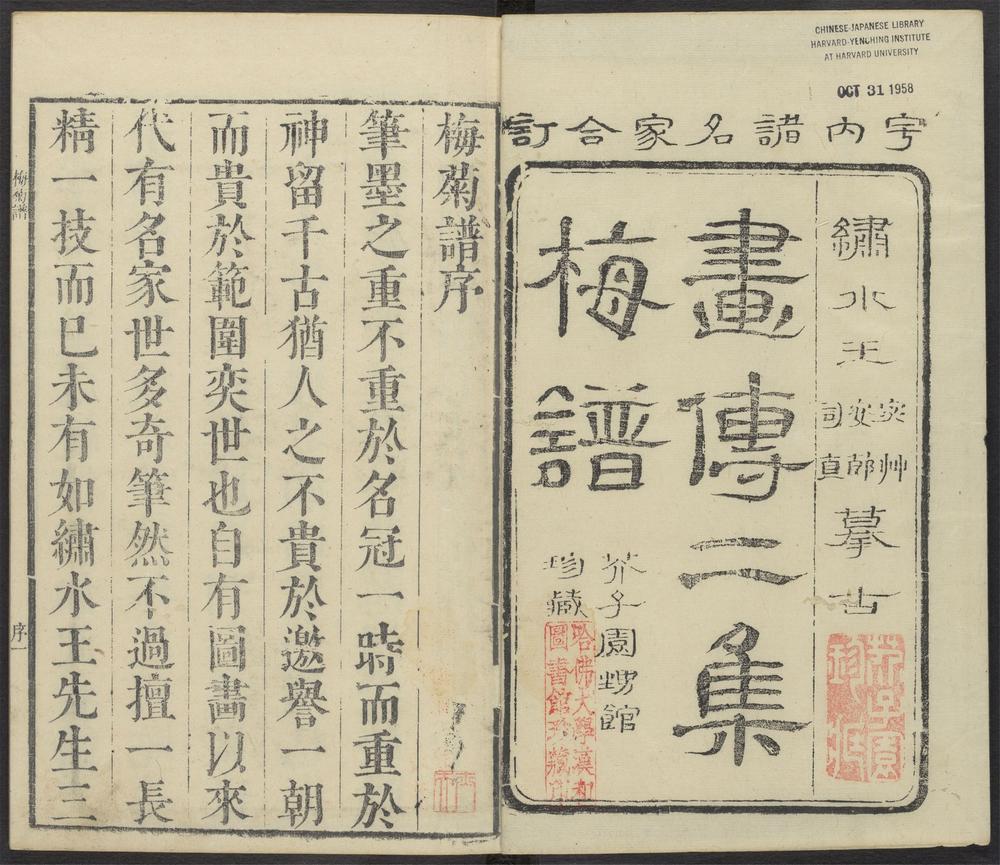 CHINESE-JAPANESE LIBRARY
HARVARD-YENCHING INSTITUTE
AT HARVARD UNIVERSITY
OCT 31 1958
宇內諸名家合訂
繡水王宓草安節司直摹古
畫傳二集
梅譜
芥子園甥館
珍藏
哈佛大學漢和
圖書館珍藏印
梅菊譜序
筆墨之重不重於名冠一時而重於
神留千古猶人之不貴於邀譽一朝
而貴於範圍奕世也自有圖畫以來
代有名家世多奇筆然不過擅一長
精一技而已未有如繡水王先生三
梅菊譜
序一